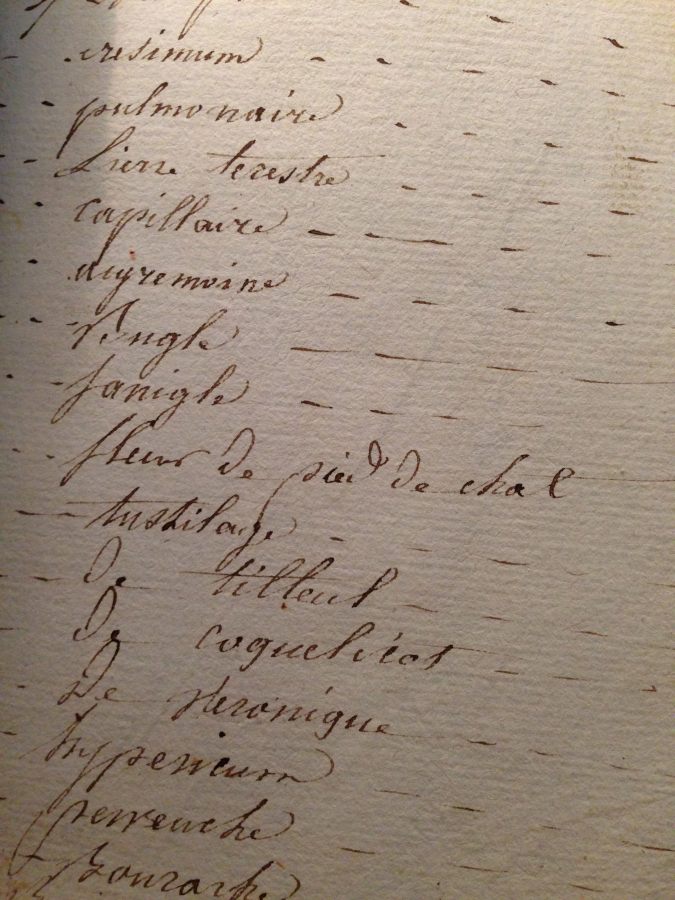 eresimum
pulmonaire
Lierre terestre
capillaire
aigremoine
Bugle
sanigle
fleur de pied de chat
tussilage
de tilleul
de coquelicot
de veronique
hypericum
perveuche
Bourache